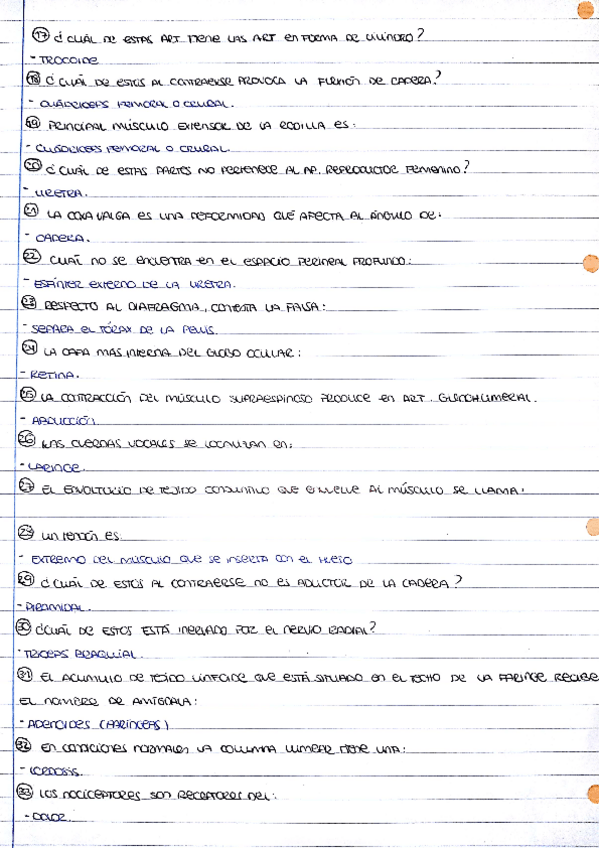 17 ¿CUÁL DE ESTAS ART TIENE LAS ART EN FORMA DE CILINDRO?
- TROCOIDE
18 ¿CUÁL DE ESTOS AL CONTRAERSE PROVOCA LA FLEXIÓN DE CADERA?
- CUÁDRICEPS FEMORAL O CRURAL.
19 PRINCIPAL MÚSCULO EXTENSOR DE LA RODILLA ES:
- CUÁDRICEPS FEMORAL O CRURAL.
20 ¿CUÁL DE ESTAS PARTES NO PERTENECE AL AP. REPRODUCTOR FEMENINO?
- URETRA.
21 LA COXA VALGA ES UNA DEFORMIDAD QUE AFECTA AL ÁNGULO DE:
- CADERA.
22 CUÁL NO SE ENCUENTRA EN EL ESPACIO PERINEAL PROFUNDO:
- ESFÍNTER EXTERNO DE LA URETRA.
23 RESPECTO AL DIAFRAGMA, CONTESTA LA FALSA:
- SEPARA EL TÓRAX DE LA PELVIS.
24 LA CAPA MAS INTERNA DEL GLOBO OCULAR:
- RETINA.
25 LA CONTRACCIÓN DEL MÚSCULO SUPRAESPINOSO PRODUCE EN ART. GLENOHUMERAL.
- ABDUCCIÓN
26 LAS CUERDAS VOCALES SE LOCALIZAN EN:
- LARINGE.
27 EL ENVOLTORIO DE TEJIDO CONJUNTIVO QUE ENVUELVE AL MÚSCULO SE LLAMA:
28 UN TENDÓN ES:
- EXTREMO DEL MÚSCULO QUE SE INSERTA CON EL HUESO
29 ¿CUÁL DE ESTOS AL CONTRAERSE NO ES ADUCTOR DE LA CADERA?
- PIRAMIDAL.
30 ¿CUÁL DE ESTOS ESTÁ INERVADO POR EL NERVIO RADIAL?
- TRICEPS BRAQUIAL.
31 EL ACUMULO DE TEJIDO LINFOIDE QUE ESTÁ SITUADO EN EL TECHO DE LA FARINGE RECIBE
EL NOMBRE DE AMÍGDALA:
- ADENOIDES (FARÍNGEAS)
32 EN CONDICIONES NORMALES LA COLUMNA LUMBAR TIENE UNA:
- LORDOSIS.
33 LOS NOCICEPTORES SON RECEPTORES DEL:
- DOLOR.